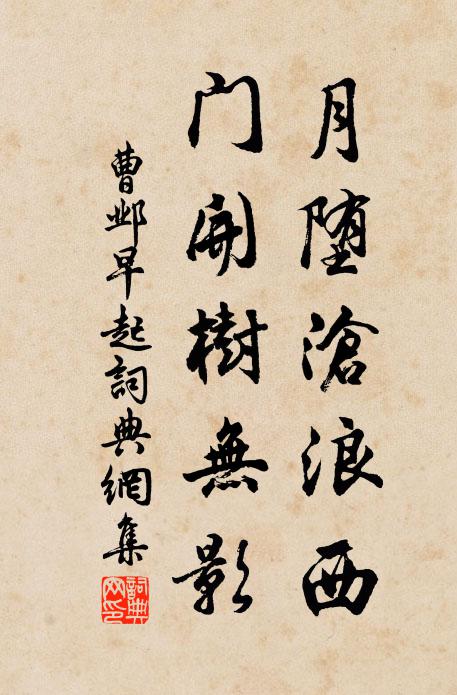 月堕滄浪西
门開樹無影
曹邺早起詞典網集
詞典网印